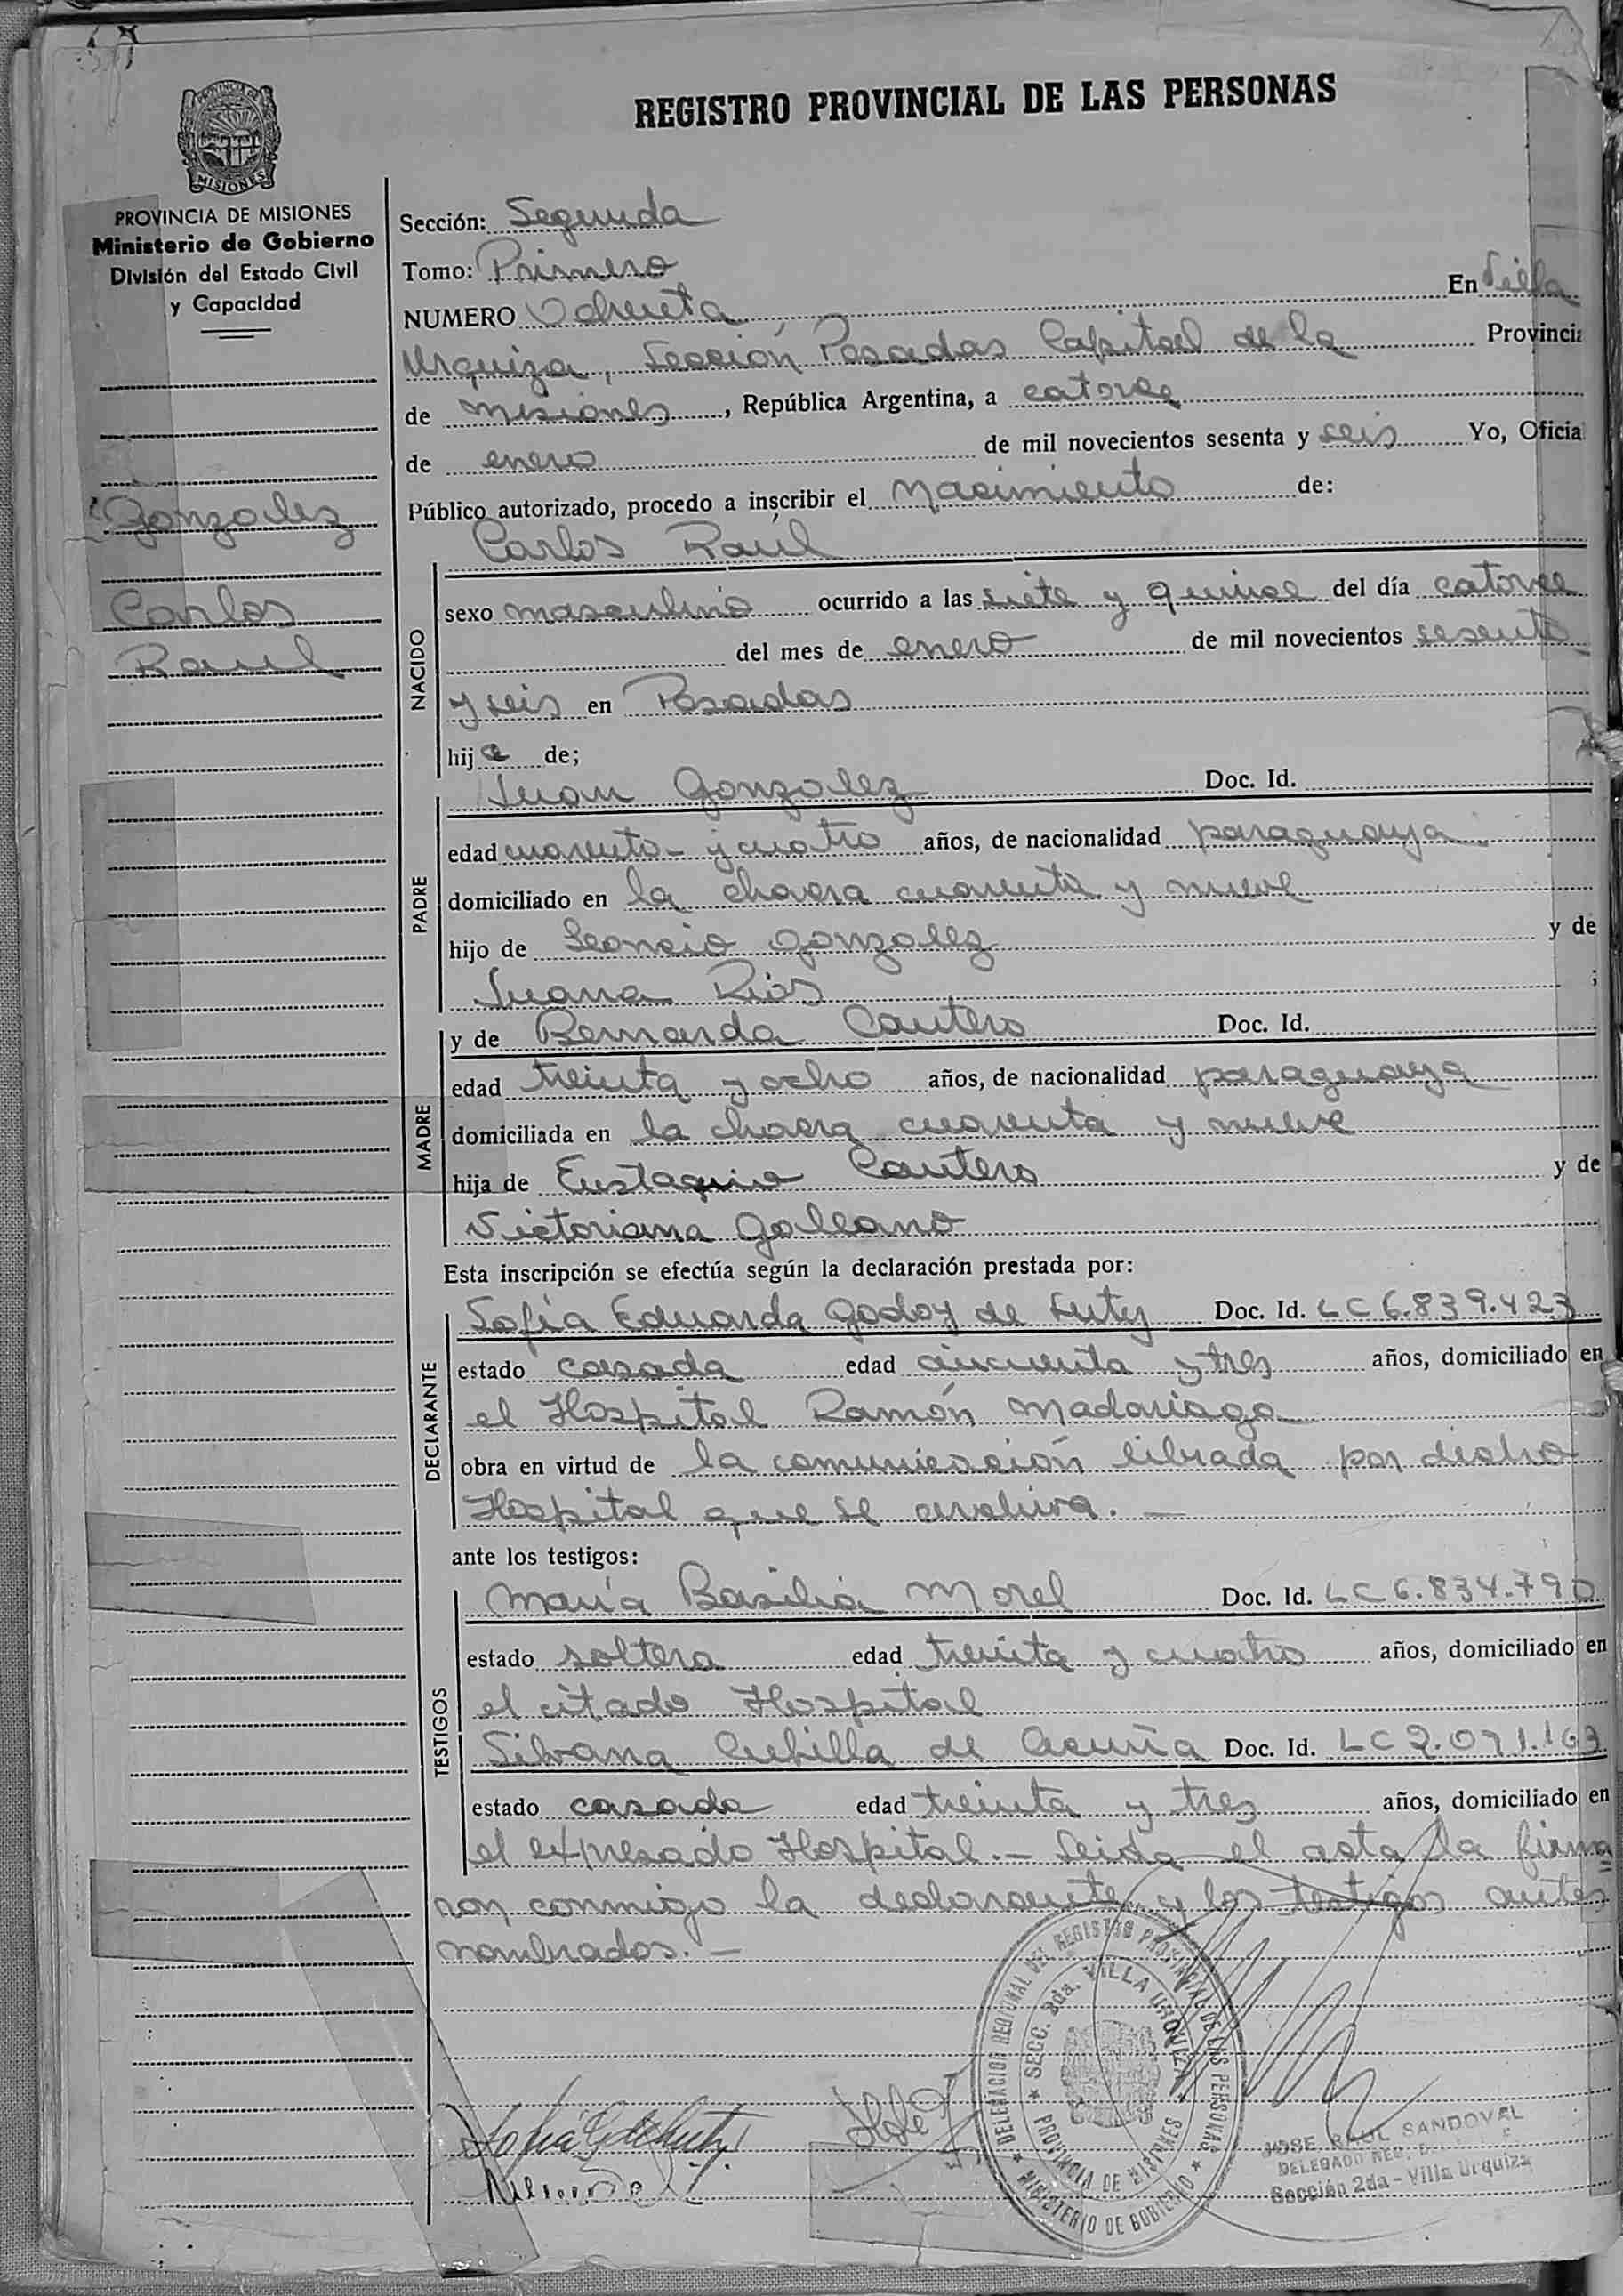 REGISTRO PROVINCIAL DE LAS PERSONAS
PROVINCIA DE
MISIONES
PROVINCIA DE MISIONES
Ministerio de Gobierno
División del Estado Civil
y Capacidad
Gonzalez
Carlos
Raul
Sección: Segunda
Tomo: Primero
NUMERO Ochenta En Villa
Urquiza, Sección Posadas Capital de la Provincia
de Misiones, República Argentina, a catorce
de enero de mil novecientos sesenta y seis Yo, Oficial
Público autorizado, procedo a inscribir el Nacimiento de:
Carlos Raúl
NACIDO
sexo masculino ocurrido a las siete y quince del día catorce
del mes de enero de mil novecientos sesenta
y seis en Posadas
hijo de;
PADRE
Juan Gonzalez Doc. Id.
edad cuarenta y cuatro años, de nacionalidad paraguaya
domiciliado en la chacra cuarenta y nueve
hijo de Leoncio Gonzalez y de
Juana Rios ;
MADRE
y de Bernarda Cantero Doc. Id.
edad treinta y ocho años, de nacionalidad paraguaya
domiciliada en la chacra cuarenta y nueve
hija de Eustaquio Cantero y de
Victoriana Galeano
Esta inscripción se efectúa según la declaración prestada por:
DECLARANTE
Sofía Eduarda Godoy de Luty Doc. Id. LC 6.839.423
estado casada edad cincuenta y tres años, domiciliado en
el Hospital Ramón Madariaga
obra en virtud de la comunicación librada por dicho
Hospital que se archiva. —
ante los testigos:
TESTIGOS
María Basilia Morel Doc. Id. LC 6.834.790
estado soltera edad treinta y cuatro años, domiciliado en
el citado Hospital
Silvana Cubilla de Acuña Doc. Id. LC 2.091.163
estado casada edad treinta y tres años, domiciliado en
el expresado Hospital. — Leida el acta la firma
ron conmigo la declarante y los testigos antes
nombrados. —
DELEGACION REGIONAL DEL REGISTRO PROVINCIAL DE LAS PERSONAS
SECC. 2da. VILLA URQUIZA
PROVINCIA DE MISIONES
MINISTERIO DE GOBIERNO
JOSE RAUL SANDOVAL
DELEGADO REG.
Sección 2da - Villa Urquiza